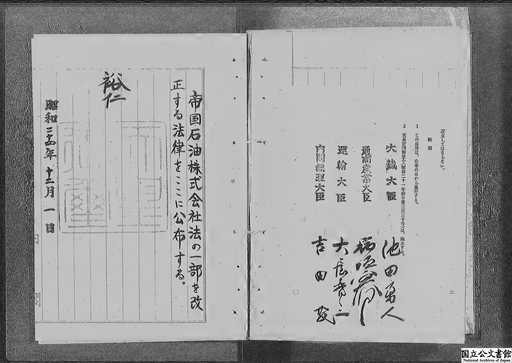 附則
1 この法律は、公布の日から施行する。
大蔵大臣 池田勇人
通商産業大臣
運輸大臣 大屋晋三
内閣総理大臣 吉田茂
帝国石油株式会社法の一部を改
正する法律をここに公布する。
裕仁
昭和二十四年十二月一日
国立公文書館
National Archives of Japan